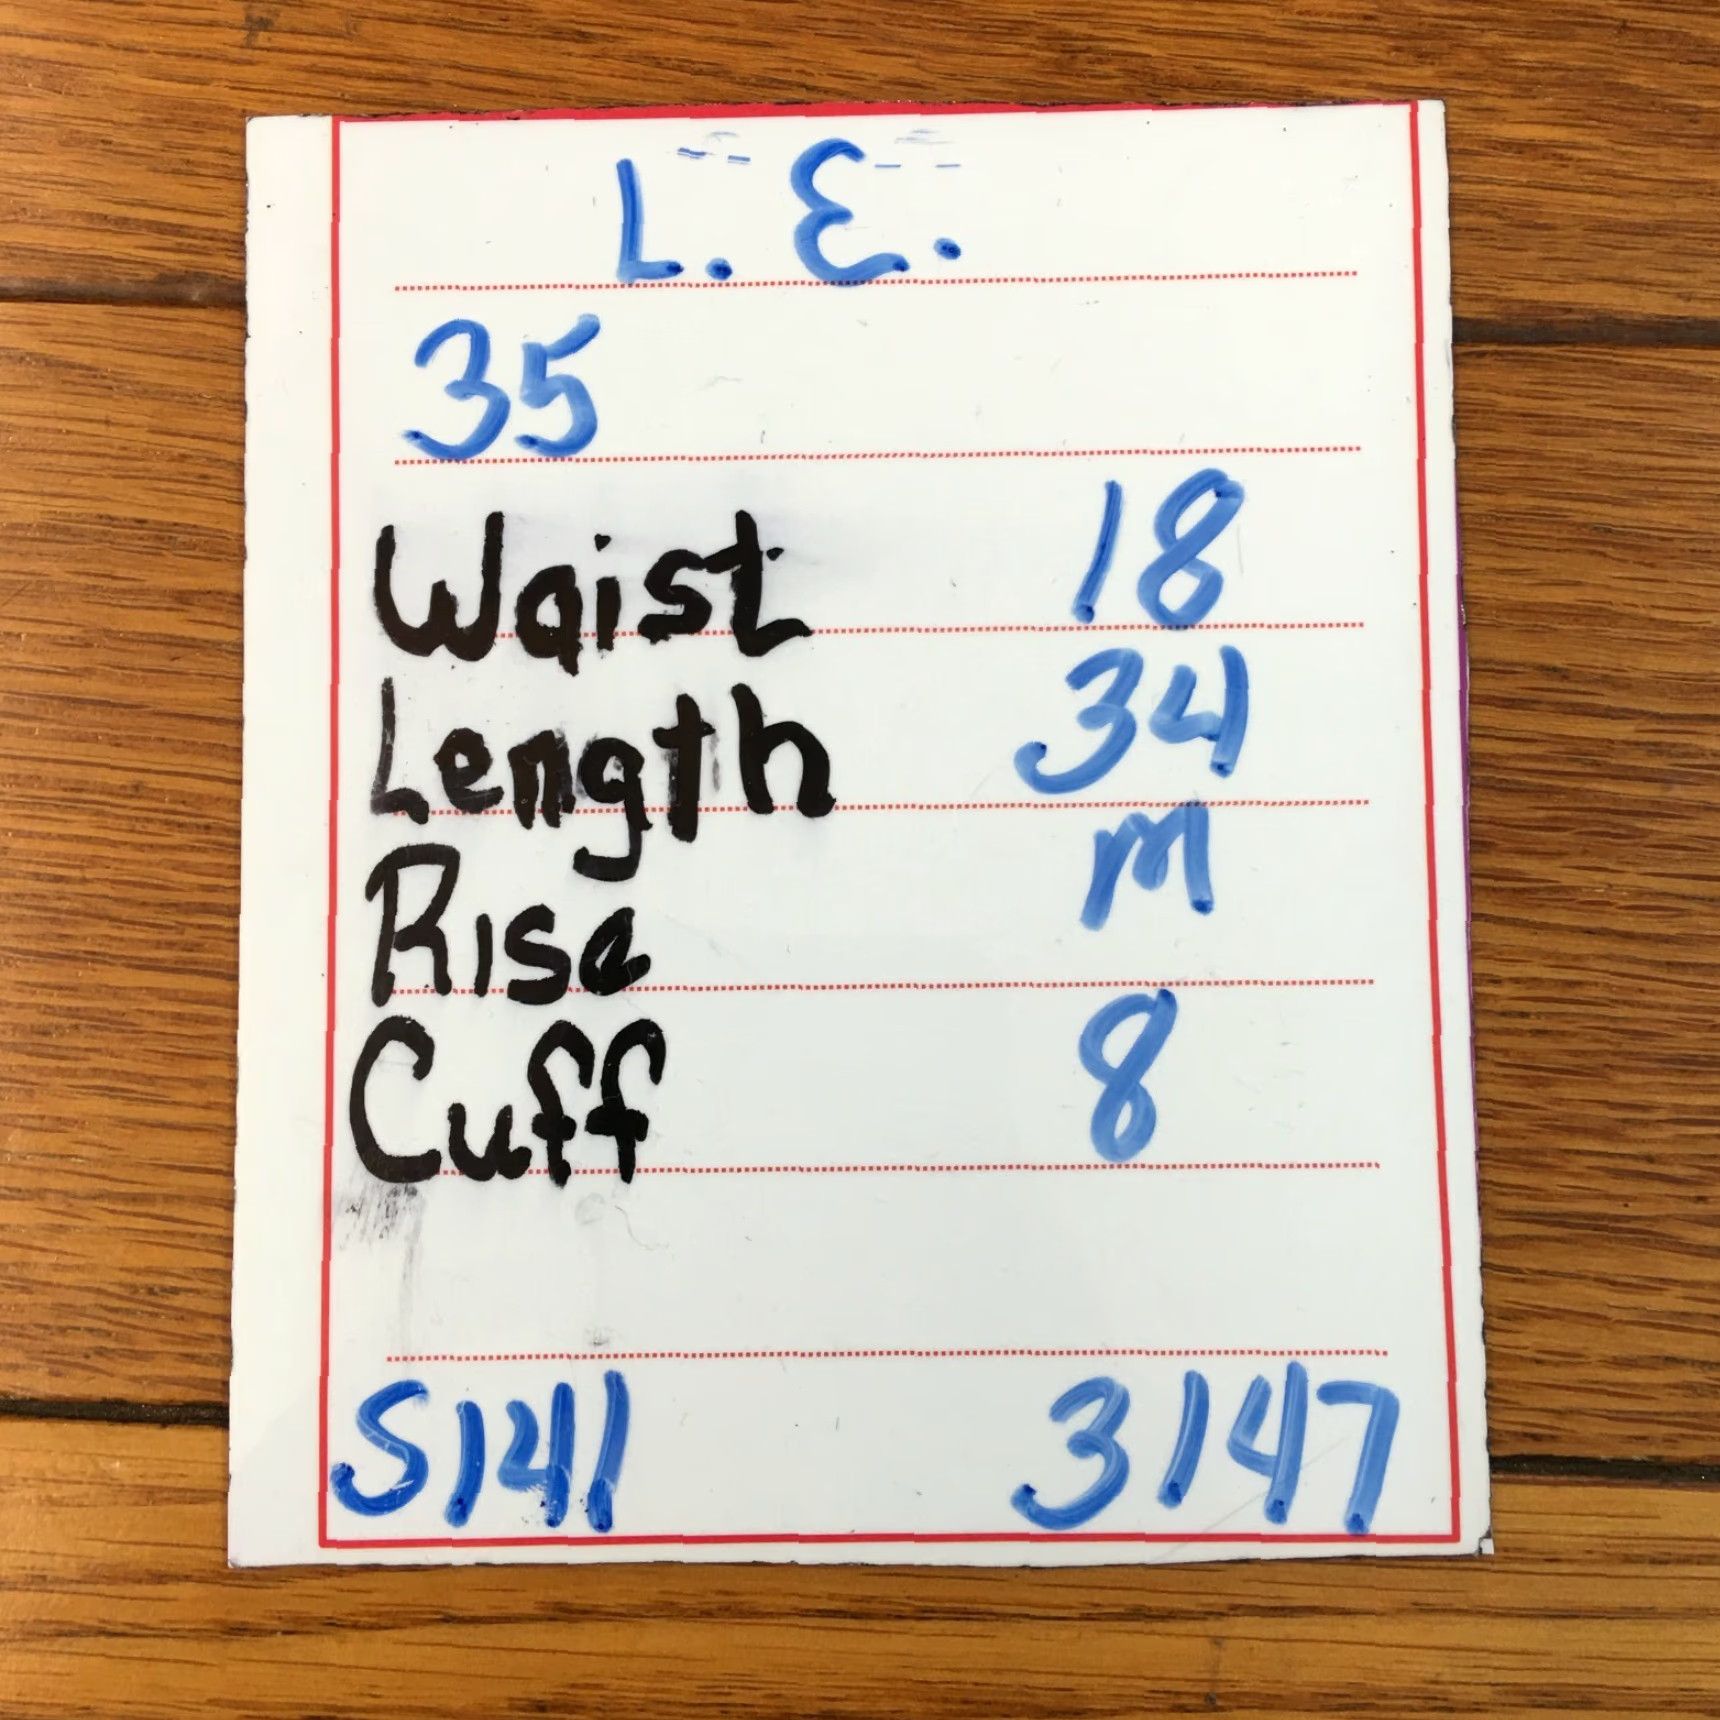 L. E.
35
Waist 18
Length 34
Rise M
Cuff 8
S141 3147